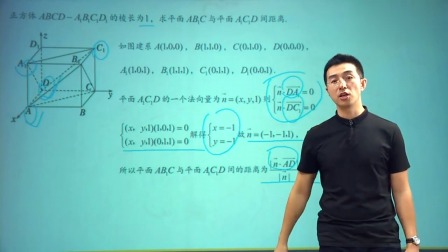 正方体 ABCD－A₁B₁C₁D₁的棱长为1，求平面AB₁C与平面A₁C₁D间距离.
z
D₁
C₁
A₁
B₁
D
C
y
x
A
B
如图建系 A(1,0,0), B(1,1,0), C(0,1,0), D(0,0,0),
A₁(1,0,1), B₁(1,1,1), C₁(0,1,1), D₁(0,0,1).
平面 A₁C₁D 的一个法向量为 n=(x,y,1) 则 {n·DA₁=0
n·DC₁=0
{(x, y,1)(1,0,1)=0
(x, y,1)(0,1,1)=0 解得 {x=−1
y=−1 故 n=(−1,−1,1),
所以平面 AB₁C 与平面 A₁C₁D 间的距离为 |n·AD|
|n|